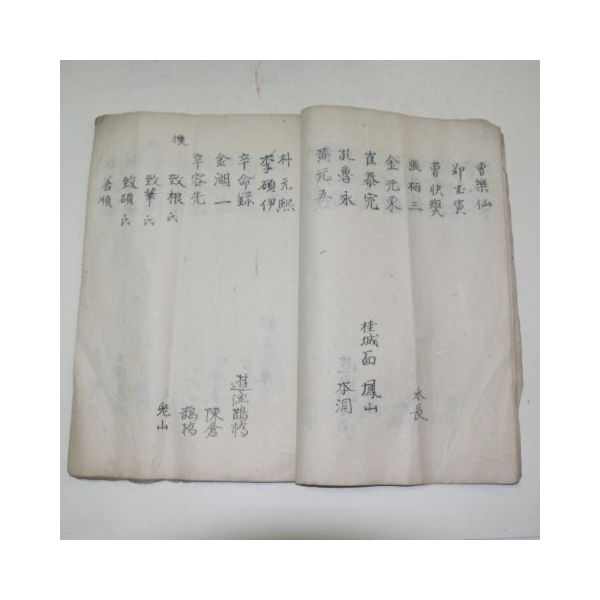 曺樂仙
鄭玉寅
曺快奭
張栢三 水長
金元禾
崔泰完 桂城面 鳳山
孔魯永 本洞
黃元五
朴元熙
李碩伊
辛命錄 遊漁鵲橋
金湖一 陳倉
辛容先 鵲橋
致根氏 兔山
致華氏
致碩氏
善順